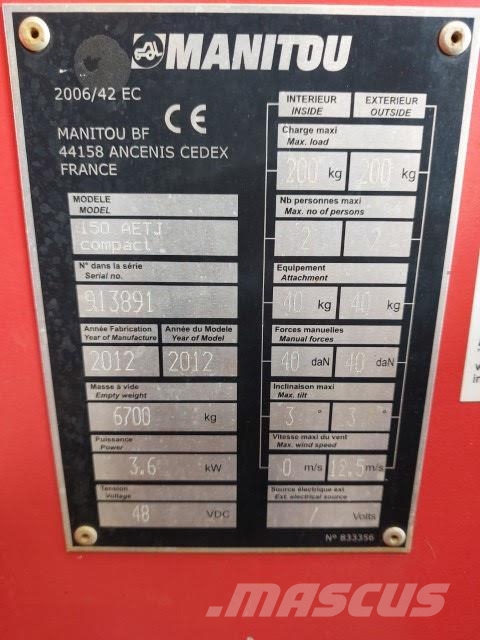 MANITOU
2006/42 EC
MANITOU BF
44158 ANCENIS CEDEX
FRANCE
CE
MODELE
MODEL
150 AETJ
compact
N° dans la série
Serial no.
913891
Année Fabrication
Year of Manufacture
Année du Modele
Year of Model
2012 2012
Masse à vide
Empty weight
6700 kg
Puissance
Power
3.6 kW
Tension
Voltage
48 VDC
INTERIEUR
INSIDE
EXTERIEUR
OUTSIDE
Charge maxi
Max. load
200 kg 200 kg
Nb personnes maxi
Max. no of persons
2 2
Equipement
Attachment
40 kg 40 kg
Forces manuelles
Manual forces
40 daN 40 daN
Inclinaison maxi
Max. tilt
3 ° 3 °
Vitesse maxi du vent
Max. wind speed
0 m/s 12.5 m/s
Source électrique ext
Ext. electrical source
/ Volts
N° 833356
MASCUS